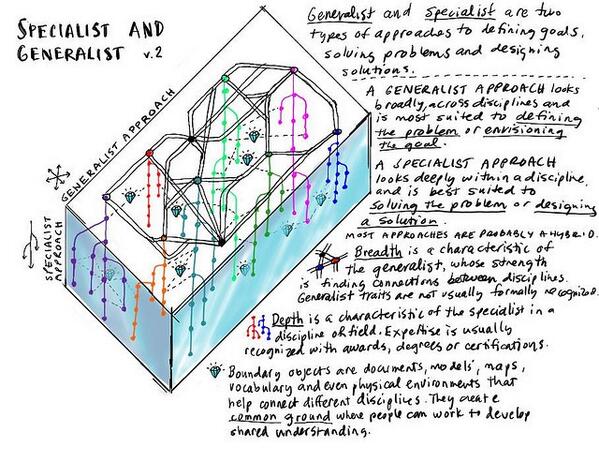 SPECIALIST AND
GENERALIST v.2
Generalist and Specialist are two
types of approaches to defining goals,
solving problems and designing
solutions.
A GENERALIST APPROACH looks
broadly, across disciplines and
is most suited to defining
the problem or envisioning
the goal.
A SPECIALIST APPROACH
looks deeply within a discipline,
and is best suited to
solving the problem or designing
a solution.
MOST APPROACHES ARE PROBABLY A HYBRID.
Breadth is a characteristic of
the generalist, whose strength
is finding connections between disciplines.
Generalist traits are not usually formally recognized.
Depth is a characteristic of the specialist in a
discipline or field. Expertise is usually
recognized with awards, degrees or certifications.
Boundary objects are documents, models, maps,
vocabulary and even physical environments that
help connect different disciplines. They create
common ground where people can work to develop
shared understanding.
GENERALIST APPROACH
SPECIALIST
APPROACH